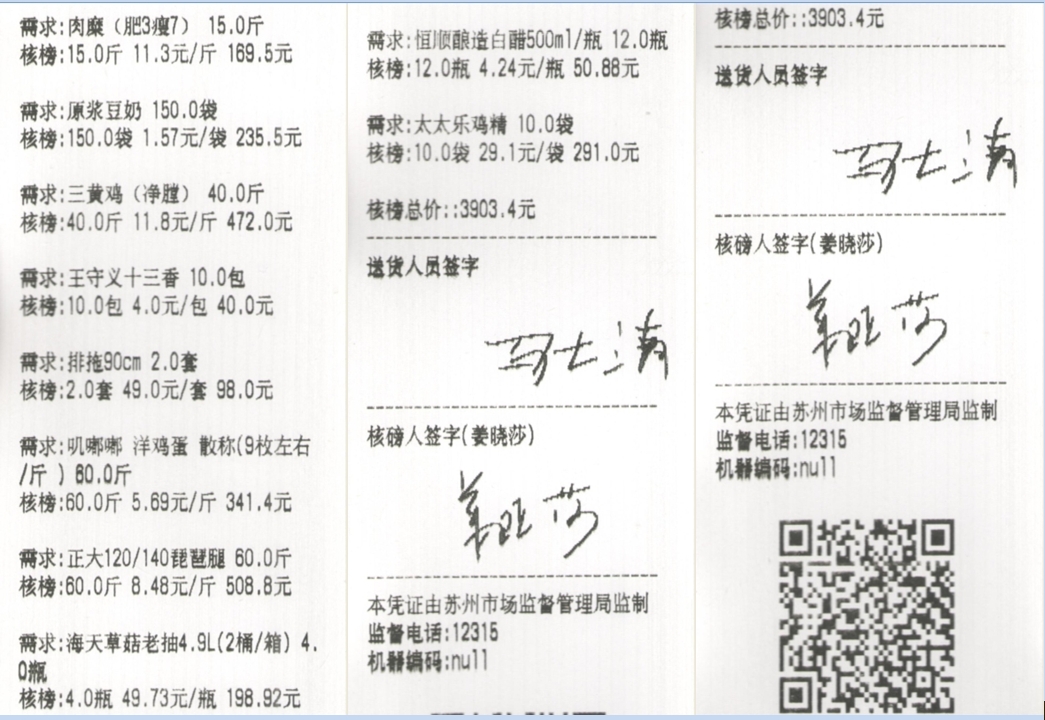 需求:肉糜（肥3瘦7） 15.0斤
核榜:15.0斤 11.3元/斤 169.5元
需求:原浆豆奶 150.0袋
核榜:150.0袋 1.57元/袋 235.5元
需求:三黄鸡（净膛） 40.0斤
核榜:40.0斤 11.8元/斤 472.0元
需求:王守义十三香 10.0包
核榜:10.0包 4.0元/包 40.0元
需求:排拖90cm 2.0套
核榜:2.0套 49.0元/套 98.0元
需求:叽嘟嘟 洋鸡蛋 散称(9枚左右
/斤 ) 60.0斤
核榜:60.0斤 5.69元/斤 341.4元
需求:正大120/140琵琶腿 60.0斤
核榜:60.0斤 8.48元/斤 508.8元
需求:海天草菇老抽4.9L(2桶/箱) 4.
0瓶
核榜:4.0瓶 49.73元/瓶 198.92元
需求:恒顺酿造白醋500ml/瓶 12.0瓶
核榜:12.0瓶 4.24元/瓶 50.88元
需求:太太乐鸡精 10.0袋
核榜:10.0袋 29.1元/袋 291.0元
核榜总价::3903.4元
送货人员签字
核磅人签字(姜晓莎)
姜晓莎
本凭证由苏州市场监督管理局监制
监督电话:12315
机器编码:null
核榜总价::3903.4元
送货人员签字
核磅人签字(姜晓莎)
姜晓莎
本凭证由苏州市场监督管理局监制
监督电话:12315
机器编码:null